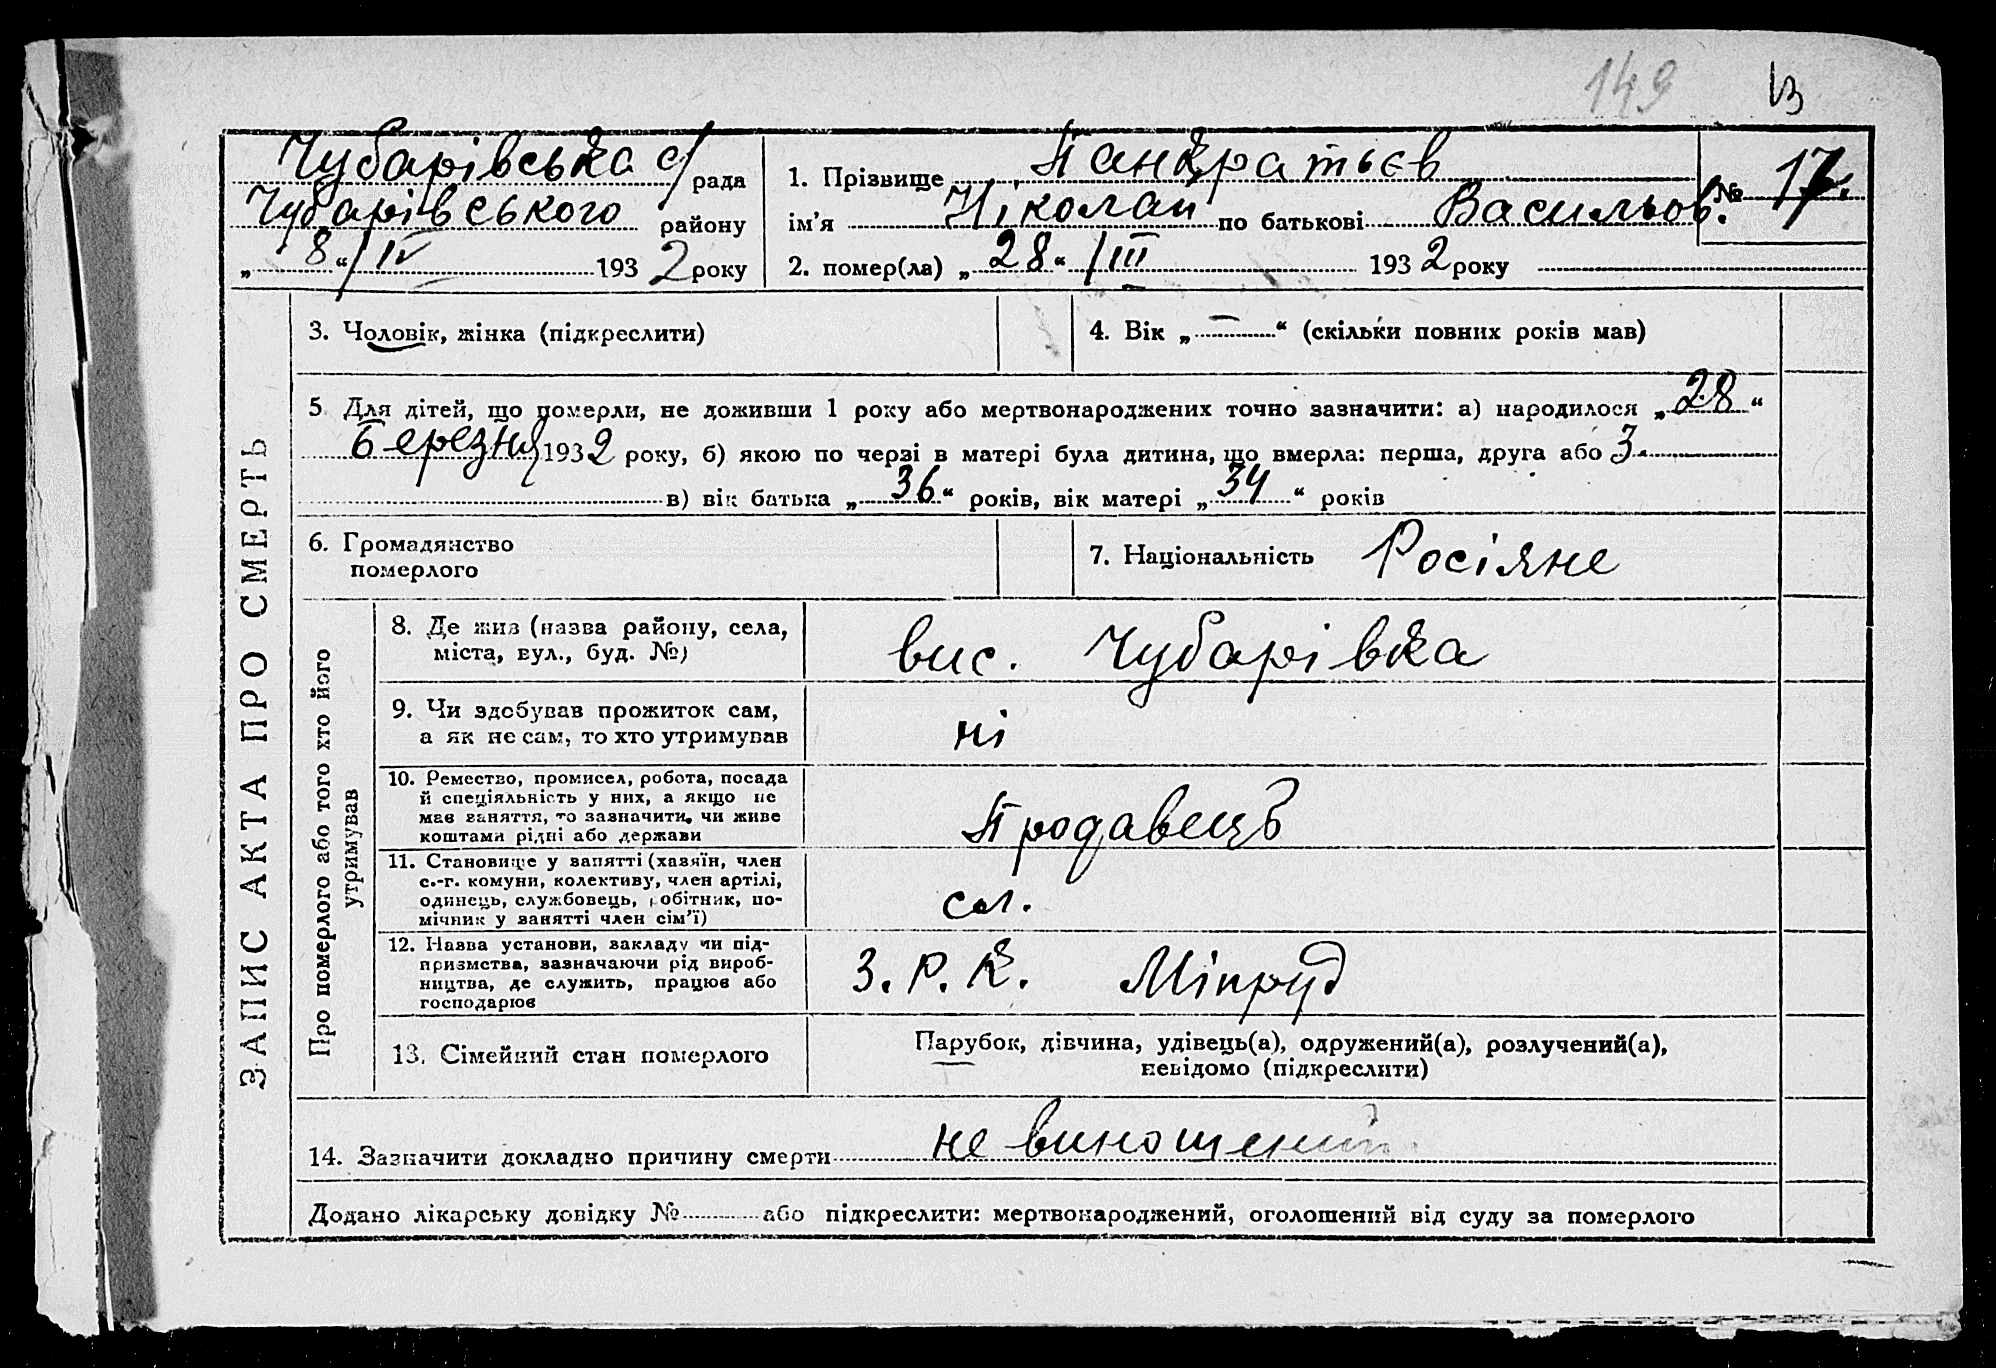 149 13
Чубарівська с/рада
Чубарівського району
„8“/IV 1932 року
1. Прізвище Панкратьєв
ім’я Ніколай по батькові Васильов.
№ 17.
2. помер(ла) „28“/III 1932 року
ЗАПИС АКТА ПРО СМЕРТЬ
3. Чоловік, жінка (підкреслити)
4. Вік „—“ (скільки повних років мав)
5 Для дітей, що померли, не доживши 1 року або мертвонароджених точно зазначити: а) народилося „28“
Березня 1932 року, б) якою по черзі в матері була дитина, що вмерла: перша, друга або 3
в) вік батька „36“ років, вік матері „34“ років
6. Громадянство
померлого
7. Національність Росіяне
Про померлого або того хто його
утримував
8. Де жив (назва району, села,
міста, вул., буд. №)
вис. Чубарівка
9. Чи здобував прожиток сам,
а як не сам, то хто утримував
ні
10. Ремество, промисел, робота, посада
й спеціяльність у них, а якщо не
мав заняття, то зазначити, чи живе
коштами рідні або держави
Продавець
11. Становище у занятті (хазяїн, член
с.-г. комуни, колективу, член артілі,
одинець, службовець, робітник, по-
мічник у занятті член сім’ї)
сл.
12. Назва установи, закладу чи під-
приємства, зазначаючи рід вироб-
ництва, де служить, працює або
господарює
З.Р.К.
13. Сімейний стан померлого
Парубок, дівчина, удівець(а), одружений(а), розлучений(а),
невідомо (підкреслити)
14. Зазначити докладно причину смерти не виношений
Додано лікарську довідку № або підкреслити: мертвонароджений, оголошений від суду за померлого